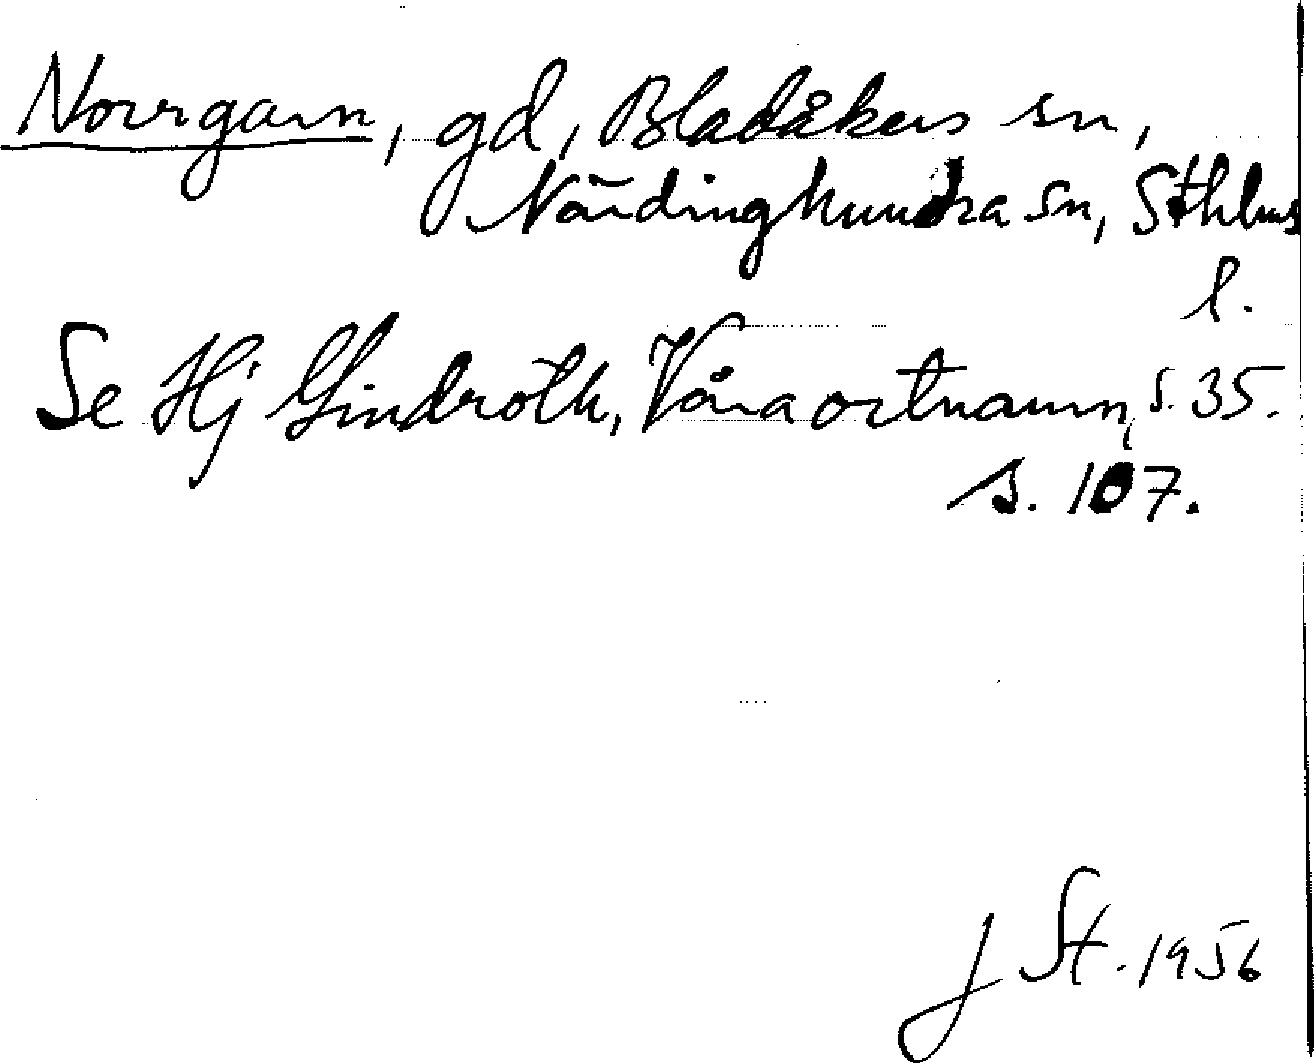 Norrgarn, gd, Bladåkers sn,
Närdinghundra sn, Sthlms
l.
Se Hj Lindroth, Våra ortnamn, s. 35.
s. 107.
J St. 1956